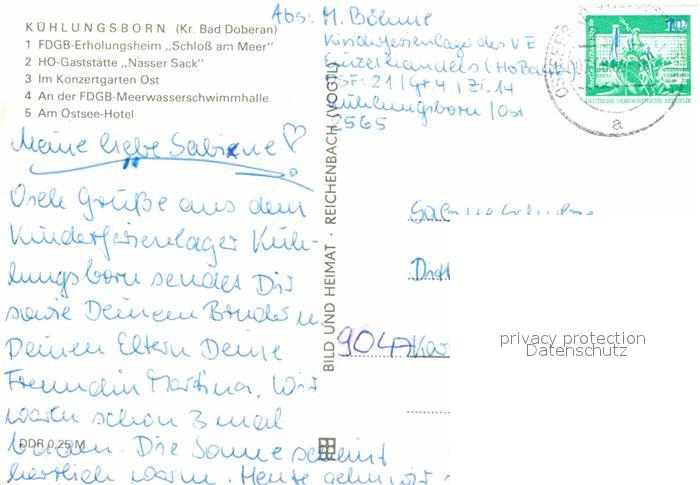 KÜHLUNGSBORN (Kr. Bad Doberan)
1 FDGB-Erholungsheim „Schloß am Meer"
2 HO-Gaststätte „Nasser Sack"
3 Im Konzertgarten Ost
4 An der FDGB-Meerwasserschwimmhalle
5 Am Ostsee-Hotel
Abs: M. Böhme
Kinderferienlager des VE
Einzelhandels (HO
SF: 21 / Gr 4 / Zi. 14
Kühlungsborn / Ost
2565
10
DEUTSCHE DEMOKRATISCHE REPUBLIK
OSTSEEBAD
a
Meine liebe Sabine
Viele Grüße aus dem
Kinderferienlager Küh-
lungsborn sendet Dir
sowie Deinem Bruder u.
Deinen Eltern Deine
Freundin Martina. Wir
waren schon 3 mal
baden. Die Sonne scheint
herrlich warm. Heute gehn wir
DDR 0,25 M
BILD UND HEIMAT · REICHENBACH (VOGTL)
9047 Kar
privacy protection
Datenschutz